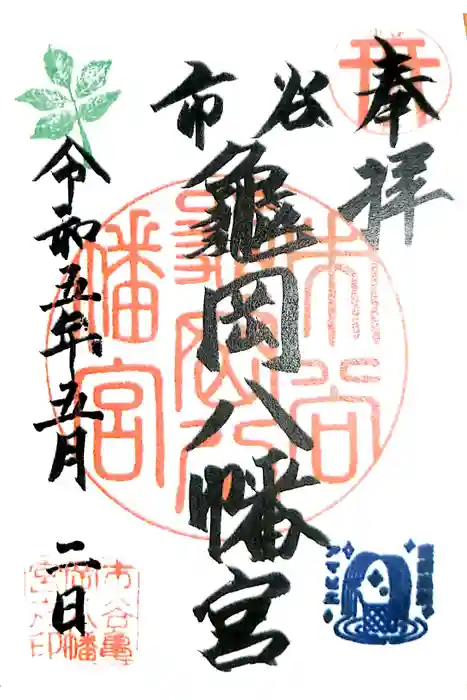 奉拝
市谷
龜岡八幡宮
令和五年五月二日
市谷
龜岡八
幡宮
市谷亀
岡八幡
宮之印